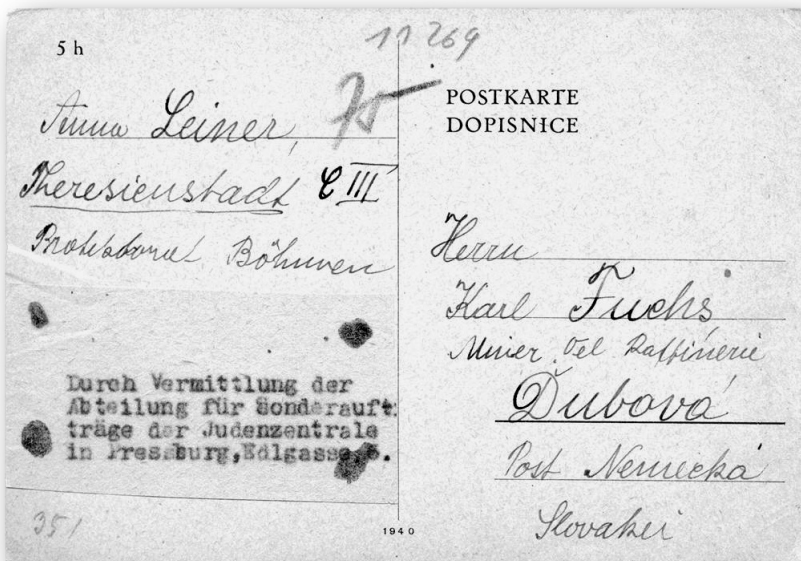 5 h
11269
75
Anna Leiner,
Theresienstadt C III
Protektorat Böhmen
Durch Vermittlung der
Abteilung für Sonderauft:
träge der Judenzentrale
in Pressburg, Edlgasse, 6.
351
1940
POSTKARTE
DOPISNICE
Herrn
Karl Fuchs,
Miner. Oel Raffinerie
Dubová
Post Nemecká
Slovakei